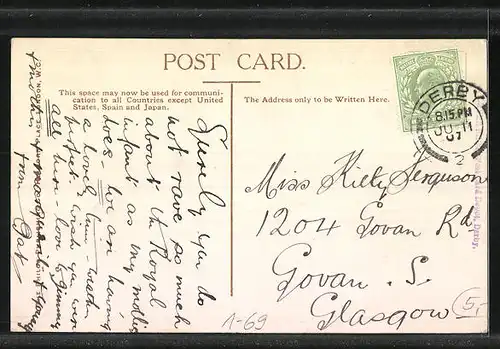 POST CARD.
This space may now be used for communi-
cation to all Countries except United
States, Spain and Japan.
The Address only to be Written Here.
DERBY
8.15 PM
JU 11
07
2
Surely you do
not rave so much
about the Royal
infant as my
does! We are having
a lovely time - weather
perfect - wish you were
all here - love to Jimmy
from
Miss Kitty Ferguson
1204 Govan Rd
Govan . S.
Glasgow
1-69
5,-